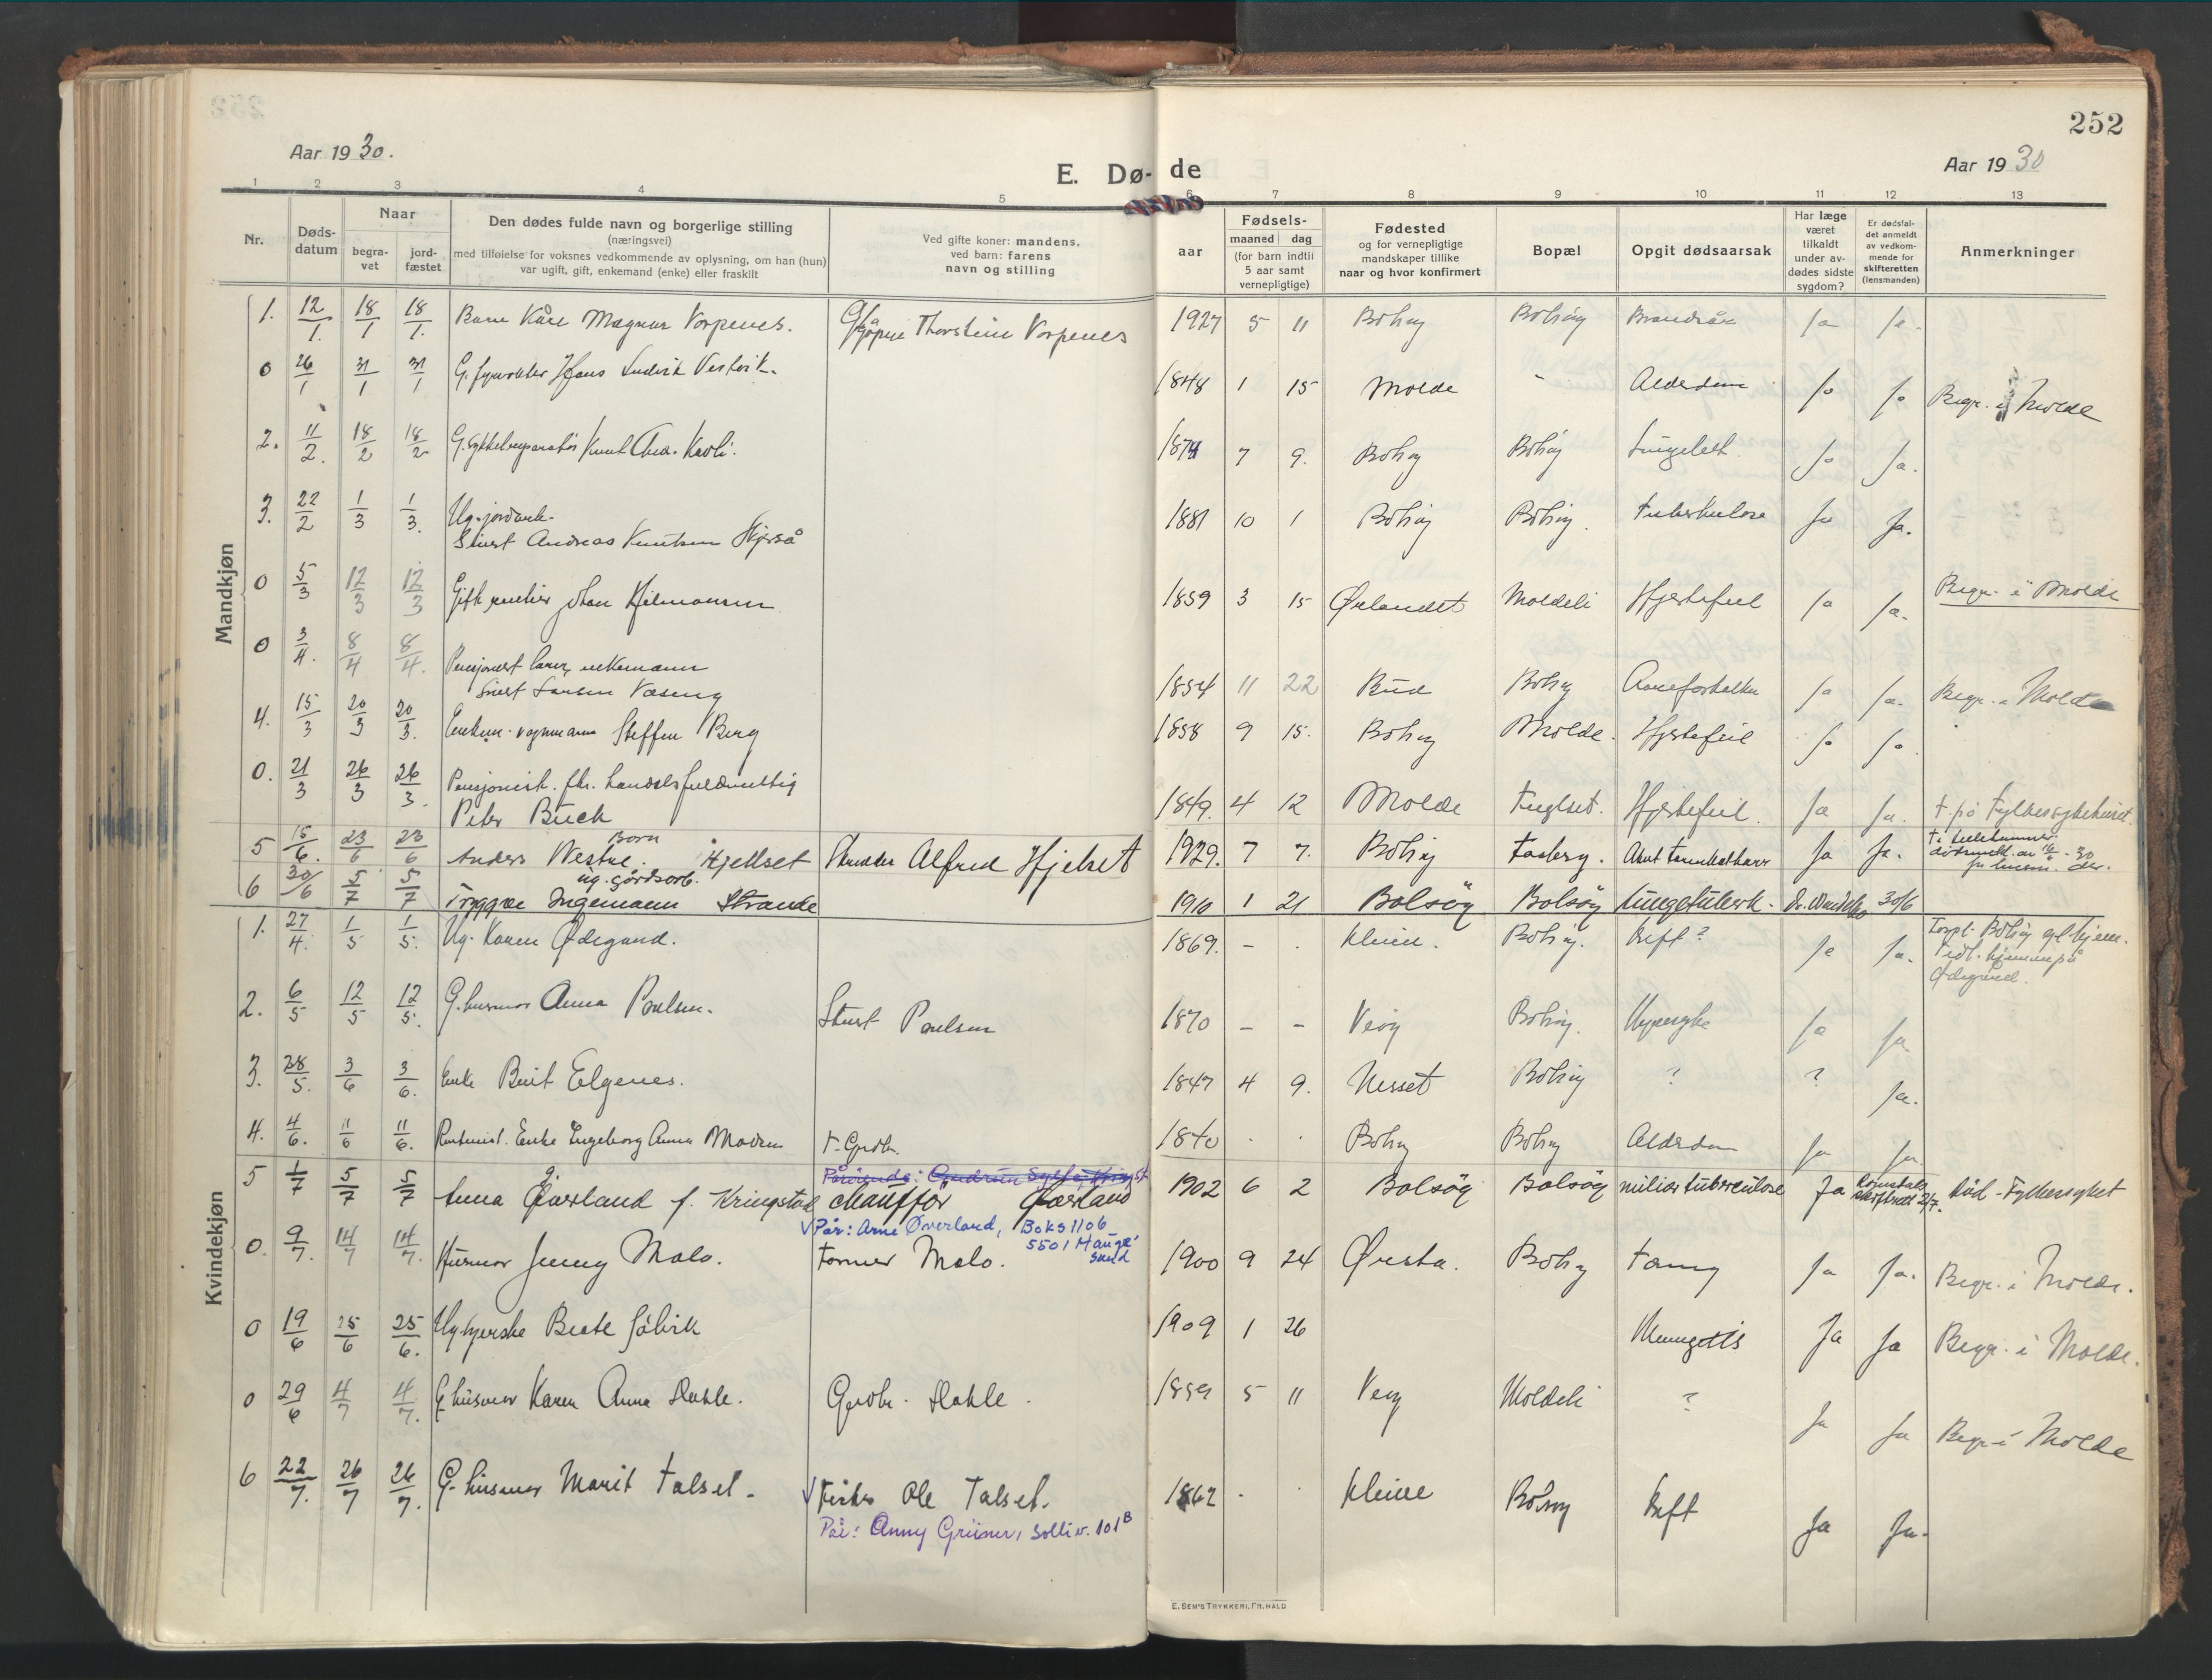 252
Aar 1930.
E. Dø-de
Aar 1930
1 2 3 4 5 6 7 8 9 10 11 12 13
Nr.
Døds-
datum
Naar
begra-
vet
jord-
fæstet
Den dødes fulde navn og borgerlige stilling
(næringsvei)
med tilføielse for voksnes vedkommende av oplysning, om han (hun)
var ugift, gift, enkemand (enke) eller fraskilt
Ved gifte koner: mandens,
ved barn: farens
navn og stilling
Fødsels-
aar
maaned dag
(for barn indtil
5 aar samt
vernepligtige)
Fødested
og for vernepligtige
mandskaper tillike
naar og hvor konfirmert
Bopæl
Opgit dødsaarsak
Har læge
været
tilkaldt
under av-
dødes sidste
sygdom?
Er dødsfal-
det anmeldt
av vedkom-
mende for
skifteretten
(lensmanden)
Anmerkninger
Mandkjøn
1. 12/1. 18/1 18/1. Barn Kåre Magnus Vorpenes. Thorstein Vorpenes 1927 5 11 Bolsøy Bolsøy Ja Ja.
0 26/1 31/1 31/1 G. Hans Ludvik Vestvik. 1848 1 15 Molde - Alderdom Ja Ja Begr. i Molde
2. 11/2. 18/2 18/2 G. Knut And. Kavli. 1874 7 9. Bolsøy Bolsøy Ja Ja.
3. 22/2 1/3 1/3. Ug. jordarb.
Sivert Andreas Knutsen 1881 10 1 Bolsøy Bolsøy. Tuberkulose Ja Ja.
0 5/3 12/3 12/3 Gift rentier Johan Hilmarsen 1859 3 15 Ørlandet Moldeli Hjertefeil Ja Ja. Begr. i Molde
0 3/4. 8/4 8/4. Pensjonert lærer, enkemann
Sivert Larsen Vaseng 1854 11 22 Bud Bolsøy Aareforkalkn Ja Ja. Begr. i Molde
4. 15/3 20/3 20/3. Enkem. vognmann Steffen Berg 1858 9 15. Bolsøy Molde. Hjertefeil Ja Ja.
0. 21/3 26/3 26/3. Pensjonist. fhv. handelsfuldmektig
Peter Buch 1849. 4 12 Molde Fuglset. Hjertefeil. Ja Ja. † på Fylkessykehuset.
5 15/6. 23/6 23/6 Barn
Anders Westre. Hjellset Alfred Hjelset 1929. 7 7. Bolsøy Faaberg. Akut Ja Ja. † i Lillehammer.
6 30/6 5/7 5/7 ug. gårdsarb.
Tryggve Ingemann Strande 1910 1 21 Bolsöy Bolsöy Lungetuberk. 30/6
Kvindekjøn
1. 27/4. 1/5 1/5. Ug. Karen Ødegaard. 1869. - . Kleive. Bolsøy. Kreft? Ja Ja. Forpl. Bolsøy
Tidl. hjemme på
Ødegaard.
2. 6/5 12/5 12/5. G. husmor Anna Paulsen. Sivert Paulsen 1870 - - Veøy Bolsøy. Nyresyke Ja Ja.
3. 28/5. 3/6 3/6. Enke Berit Elgenes. 1847 4 9. Nesset Bolsøy ? ? Ja.
4. 4/6. 11/6 11/6. Enke Ingeborg Anna Moen † Gårdbr. 1840 . . Bolsøy Bolsøy Alderdom Ja Ja
5 1/7 5/7 5/7 Anna Överland f. Kringstad Pårörende: Gudrun
Chauffør Överland 1902 6 2 Bolsöy Bolsöy miliær tuberculose Ja Romsdals
skifterett 2/7. død - Fylkessyket
Pår: Arne Øverland, Boks 1106
5501 Hauge-
sund
0. 9/7. 14/7 14/7. Husmor Jenny Malo. Former Malo. 1900 9 24 Ørsta. Bolsøy Ja Ja. Begr. i Molde.
0 19/6 25/6 25/6. Ug. Beate 1909 1 26 Ja Ja Begr. i Molde.
0 29/6 4/7 4/7. G. husmor Karen Anna Gårdbr. 1859 5 11 Veøy Moldeli ? Ja Ja Begr. i Molde
6 22/7. 26/7 26/7. G. husmor Marit Talset. Fisker Ole Talset. 1862 . . Kleive Bolsøy Kreft Ja Ja.
Pår: Anny Grüner, Solliv. 101B
E. SEM'S TRYKKERI, FR. HALD